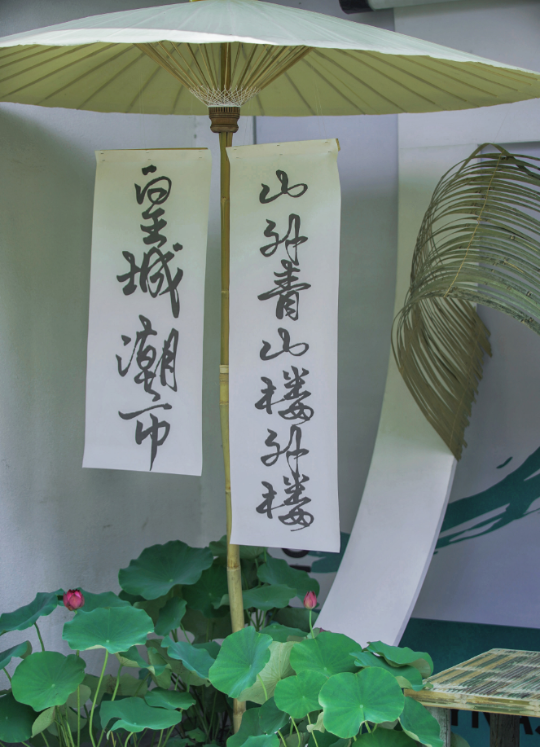 山外青山楼外楼
皇城潮市